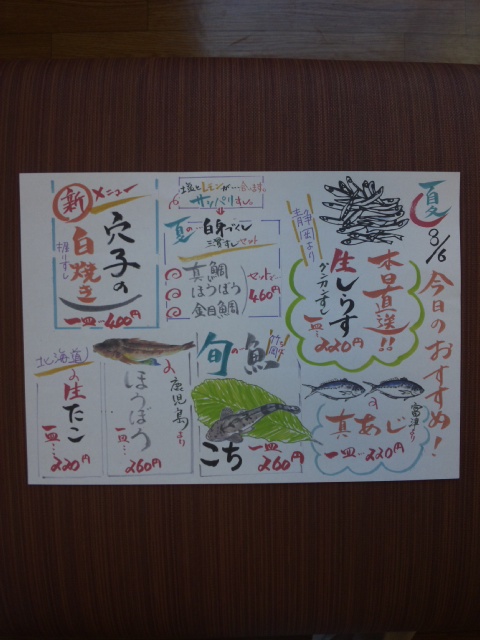 夏
8/6
今日のおすすめ！
静岡より
本日直送!!
生しらす
ぐんかんずし
一皿…220円
富津より
真あじ
一皿…220円
塩とレモンが…合います。
サッパリすし。
夏の…白身づくし
三貫すしセット
真鯛
ほうぼう
金目鯛
セットで…
460円
旬の魚
こち
一皿…
260円
新メニュー
穴子の
白焼き
握りずし
一皿…400円
鹿児島より
ほうぼう
一皿…
260円
北海道の
生たこ
一皿…
220円